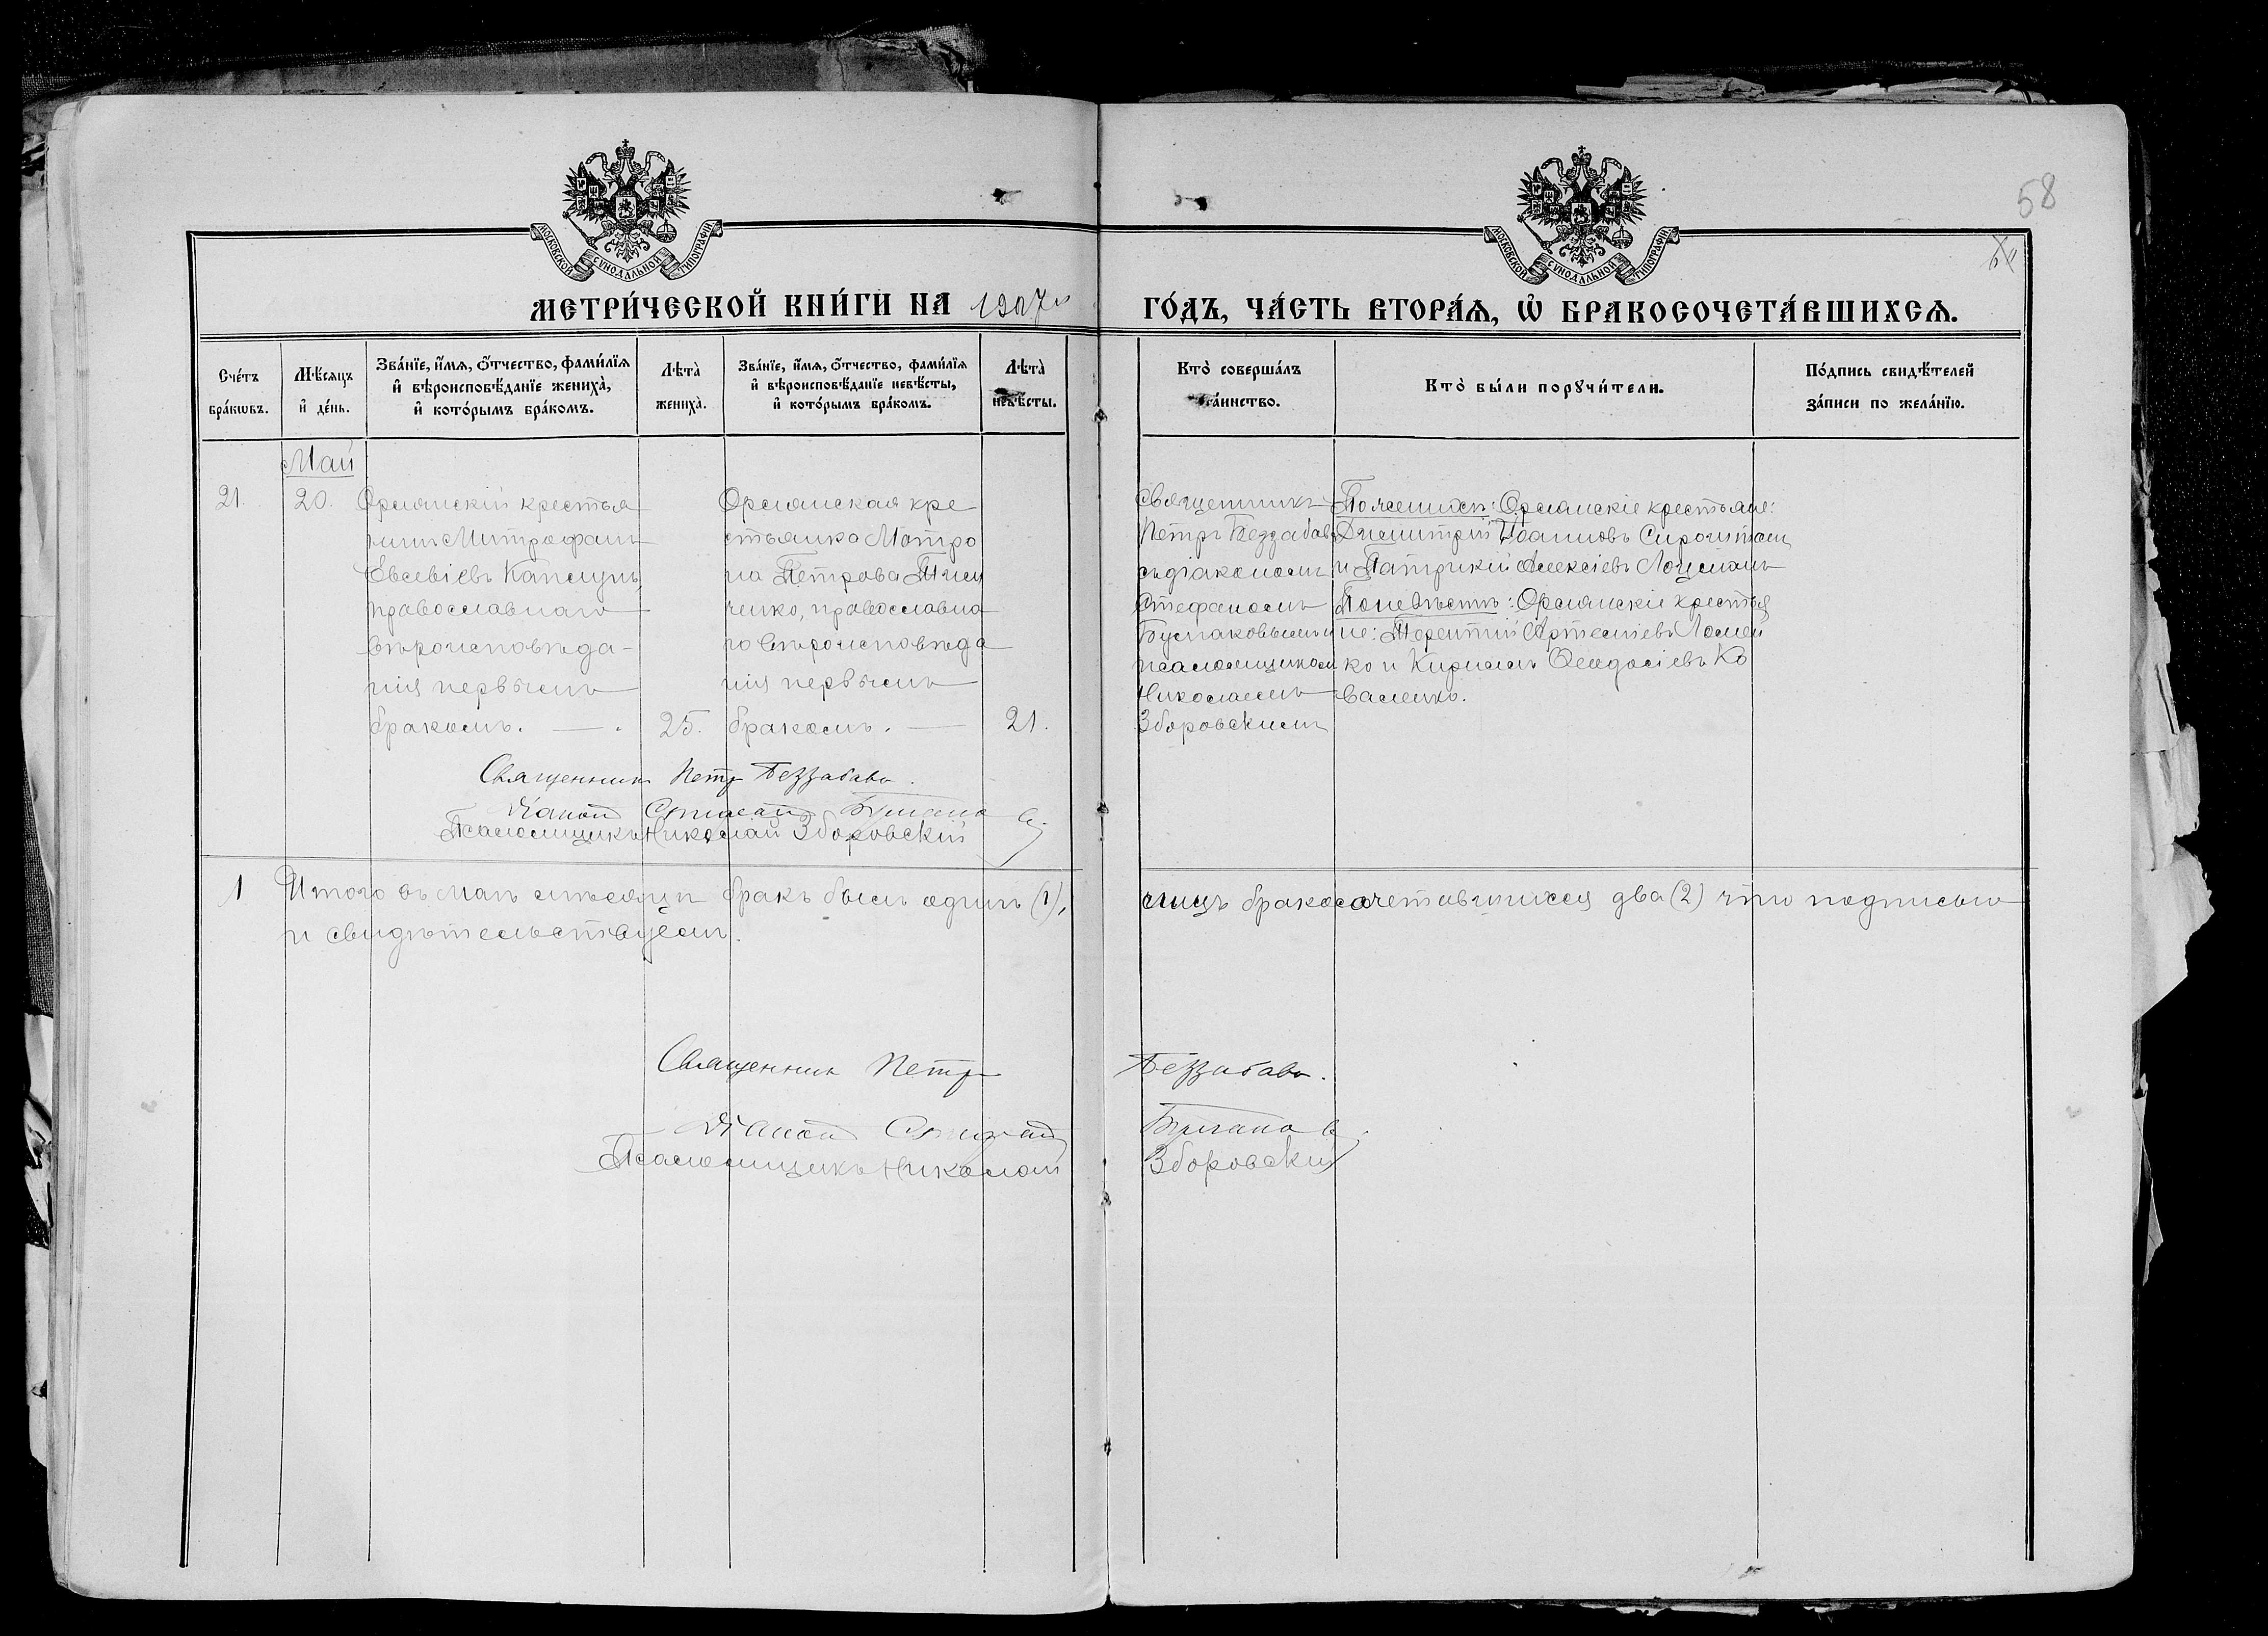 58
МОСКОВСКОЙ СУНОДАЛЬНОЙ ТИПОГРАФІИ
МОСКОВСКОЙ СУНОДАЛЬНОЙ ТИПОГРАФІИ
МЕТРИ́ЧЕСКОЙ КНИ́ГИ НА 1907
ГО́ДЪ, ЧА́СТЬ ВТОРА́Ѧ, Ѽ БРАКОСОЧЕТА́ВШИХСѦ.
Сче́тъ бра́кѡвъ.
Мѣ́сяцъ и҆ де́нь.
Зва́нїе, и҆́мѧ, ѻ҆́тчество, фами́лїѧ
и҆ вѣроисповѣ́данїе жениха̀,
и҆ кото́рымъ бра́комъ.
Лѣта̀ жениха̀.
Зва́нїе, и҆́мѧ, ѻ҆́тчество, фами́лїѧ
и҆ вѣроисповѣ́данїе невѣ́сты,
и҆ кото́рымъ бра́комъ.
Лѣта̀ невѣ́сты.
Кто̀ соверша́лъ
та́инство.
Кто̀ бы́ли порꙋчи́тели.
По́дпись свидѣ́телей
за́писи по жела́нїю.
Май
21. 20.
Орлянскій крестья
нинъ Митрофанъ
Евсевіевъ Капсунъ,
православнаго
вѣроисповѣда-
нія первымъ
бракомъ. — . 25.
Орлянская кре
стьянка Матро
на Петрова
ченко, православна
го вѣроисповѣда
нія первымъ
бракомъ. — 21.
Священникъ
Петръ Беззабава
съ діакономъ
Стефаномъ
Булаковымъ и
псаломщикомъ
Николаемъ
Зборовскимъ
По женихѣ: Орлянскіе крестьяне:
Димитрій Іоанновъ
и Патрикій Алексіевъ Лоцманъ
По невѣстѣ: Орлянскіе крестья
не: Терентій Артеміевъ Ломей
ко и Кириллъ Ѳеодосіевъ Ко
валенко.
Священникъ Петръ Беззабава.
Діаконъ Стефанъ
Псаломщикъ Николай Зборовскій
1 Итого въ маѣ мѣсяцѣ бракъ былъ одинъ (1), лицъ бракосочетавшихся два (2) что подписью
и свидѣтельствуемъ.
Священникъ Петръ Беззабава.
Діаконъ Стефанъ
Псаломщикъ Николай Зборовскій